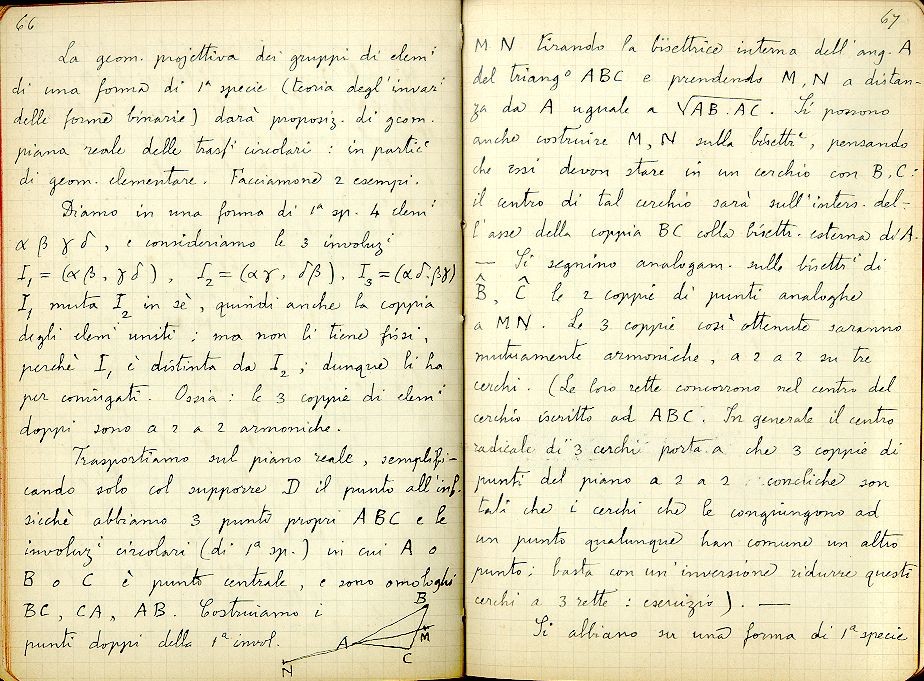 66
La geom. projettiva dei gruppi di elemⁱ
di una forma di 1ª specie (teoria degl'invarⁱ
delle forme binarie) darà proposiz. di geom.
piana reale delle trasfⁱ circolari : in particᵉ
di geom. elementare. Facciamone 2 esempi.
Diamo in una forma di 1ª sp. 4 elemⁱ
α β γ δ, e consideriamo le 3 involuzⁱ
I₁ = (αβ, γδ), I₂ = (αγ, δβ), I₃ = (αδ, βγ)
I₁ muta I₂ in sè, quindi anche la coppia
degli elemⁱ uniti ; ma non li tiene fissi,
perchè I₁ è distinta da I₂ ; dunque li ha
per coniugati. Ossia : le 3 coppie di elemⁱ
doppi sono a 2 a 2 armoniche.
Trasportiamo sul piano reale, semplifi-
cando solo col supporre D il punto all'inf.
sicchè abbiamo 3 punti propri A B C e le
involuzⁱ circolari (di 1ª sp.) in cui A o
B o C è punto centrale, e sono omologhi
BC, CA, AB. Costruiamo i
punti doppi della 1ª invol.
B
A
M
C
N
67
M N tirando la bisettrice interna dell'ang. A
del triangº ABC e prendendo M, N a distan-
za da A uguale a √AB.AC. Si possono
anche costruire M, N sulla bisettᵉ, pensando
che essi devon stare in un cerchio con B, C :
il centro di tal cerchio sarà sull'inters. del-
l'asse della coppia BC colla bisett. esterna di A.
— Si segnino analogam. sulle bisettⁱ di
B̂, Ĉ le 2 coppie di punti analoghe
a MN. Le 3 coppie così ottenute saranno
mutuamente armoniche, a 2 a 2 su tre
cerchi. (Le loro rette concorrono nel centro del
cerchio iscritto ad ABC. In generale il centro
radicale di 3 cerchi porta a che 3 coppie di
punti del piano a 2 a 2 concicliche son
tali che i cerchi che le congiungono ad
un punto qualunque han comune un altro
punto ; basta con un'inversione ridurre questi
cerchi a 3 rette : esercizio). —
Si abbiano su una forma di 1ª specie